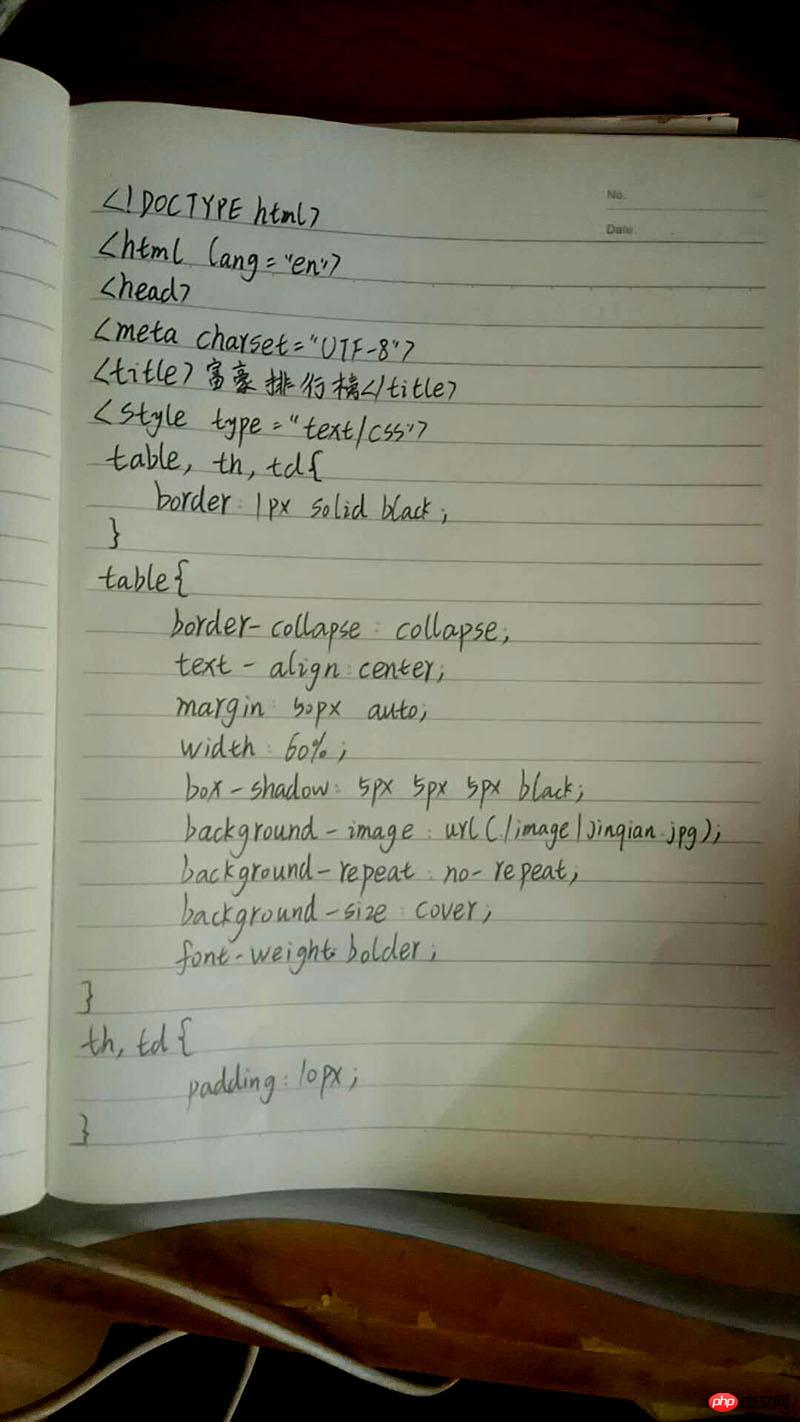 No.
Date.
<!DOCTYPE html>
<html lang="en">
<head>
<meta charset="UTF-8">
<title>富豪排行榜</title>
<style type="text/css">
table, th, td{
border: 1px solid black;
}
table{
border-collapse: collapse;
text-align: center;
margin: 50px auto;
width: 60%;
box-shadow: 5px 5px 5px black;
background-image: url(./image/jinqian.jpg);
background-repeat: no-repeat;
background-size: cover;
font-weight: bolder;
}
th, td{
padding: 10px;
}
php中文网